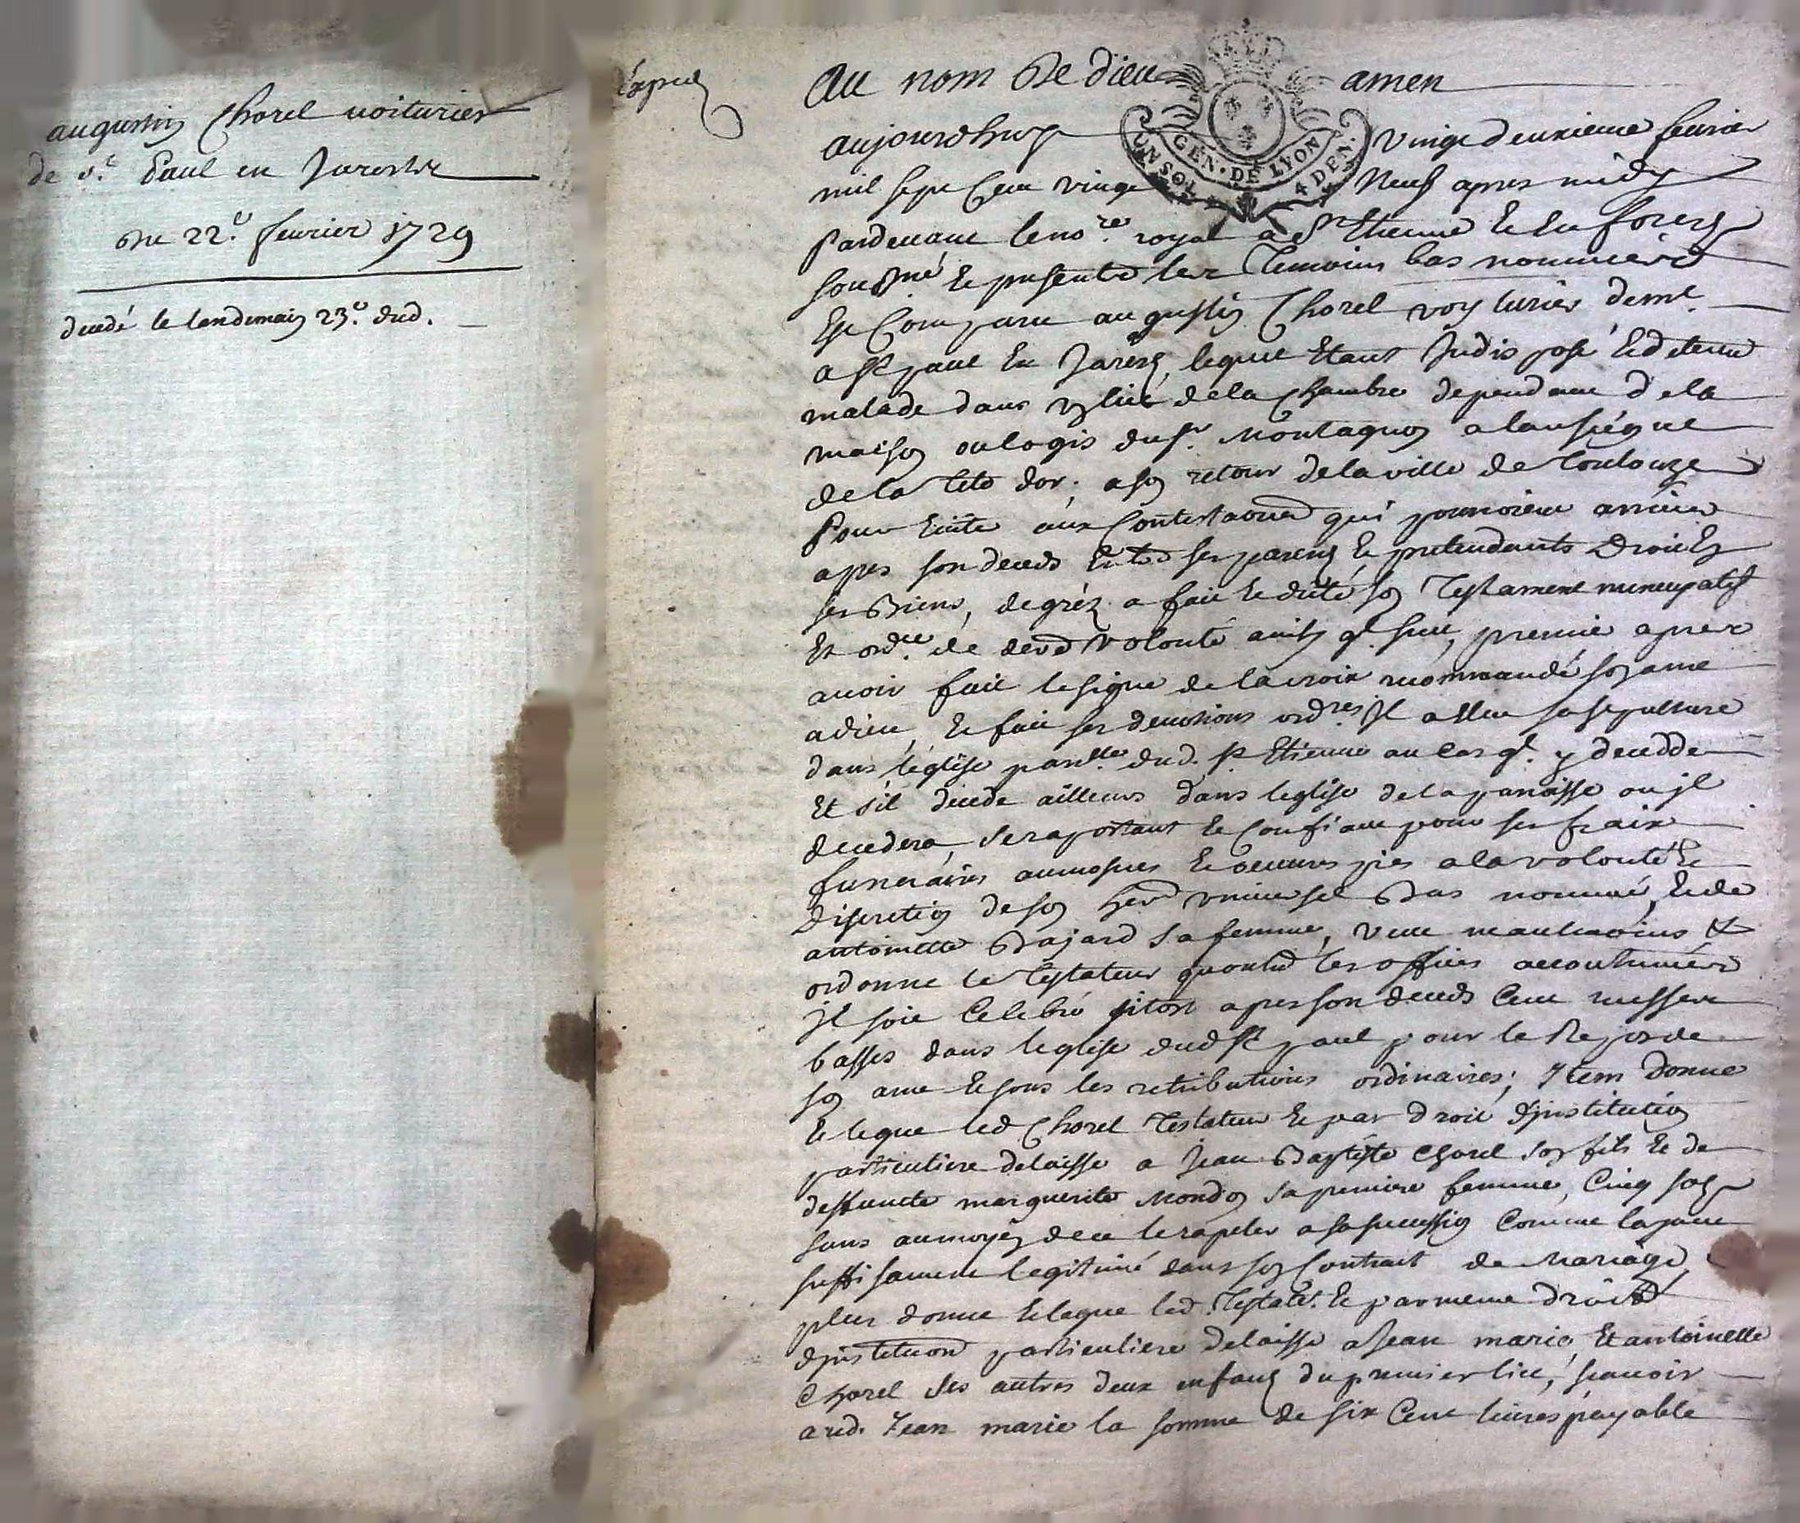 augustin Chorel voiturier
de st. Paul en Jarestz
Du 22.e fevrier 1729
decedé le lendemain 23.e dud.
Expédié
Au nom De dieu amen
GEN. DE LYON
UN SOL 4 DEN.
aujourdhuy vingt deuxieme fevrier
mil sept Cent vingt Neuf apres midy
Pardevant le no.re royal a St Etienne le En forest
sousné et presents les Temoins bas nommés
Est Comparu augustin Chorel voyturier demt.
a St paul En Jarest, lequel Etant Indisposé et detenu
malade dans un lict de la Chambre dependant de la
maison ou logis du Sr. Montagnon a lansiegne
de la Tete dor. a son retour de la ville de Toulouze
Pour Eviter aux Contestations qui pourroient arriver
apres son deceds Entre ses parens et pretendants Droict En
ses Biens, de gréz a fait et dicté son Testament nuncupatif
Et ord.ce de dere volonté ainsy q.l suit, premier apres
avoir fait le signe de la croix recommandé son ame
a dieu, Et fait ses devotions ord.res Il a Elu sa sepulture
dans l'église paroille. dud. St Etienne au cas ql. y decedde
Et s'il decede ailleurs dans leglise de la paroisse ou jl
decedera, se raportant et Confiant pour ses fraix
funeraires aumosnes et oeuvres pies a la volonté Et
discretion de son her universel Bas nommé, Et de
antoinette Bajard sa femme, veut neantmoins &
ordonne le Testateur quoutre les offices accoutumés
Il soit Celebré sitost apres son deceds Cent messes
basses dans leglise dud St paul pour le Repos de
son ame Et sous les retributions ordinaires; Item donne
Et legue led Chorel Testateur Et par droit d'institution
particuliere delaisse a Jean Baptiste Chorel son fils Et de
deffuncte marguerite Mondon sa premiere femme, Cinq sols
sans au moyen de ce le rapeler a sa succession Comme layant
suffisament legitimé dans son Contract de Mariage,
plus donne Et legue led. Testatr. Et par meme droict
d'institution particuliere delaisse a Jean marie, Et antoinette
Chorel ses autres deux enfans du premier lict, scavoir
aud. Jean marie la somme de six Cent livres payable